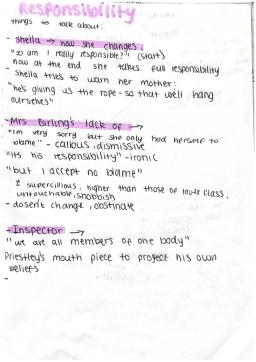 Responsibility
things to talk about:
- sheila → how she changes.
"so am I really responsible?" (start)
- now at the end she takes full responsibility
- Sheila tries to warn her mother:
"he's giving us the rope - so that we'll hang
ourselves"
- Mrs Birling's lack of →
"I'm very sorry but she only had herself to
blame" - callous, dismissive
"its his responsibility" - ironic
"but I accept no blame"
supercillious, higher than those of lower class,
untouchable, snobbish
- dosen't change, obstinate
- Inspector →
"we are all members of one body"
Priestley's mouth piece to project his own
beliefs
-